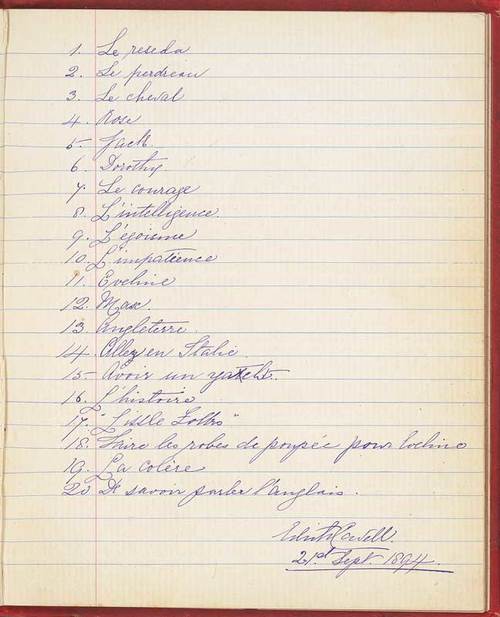 1. Le reseda
2. Le perdreau
3. Le cheval
4. Rose
5. Jack
6. Dorothy
7. Le courage
8. L'intelligence.
9. L'égoisme
10. L'impatience
11. Eveline
12. Max
13. Angleterre
14. Aller en Italie.
15. Avoir un yatcht.
16. L'histoire
17. "Little Folks"
18. Faire les robes de poupée pour Eveline
19. La colère
20. De savoir parler l'anglais.
Edith Cavell.
21st Sept. 1894.